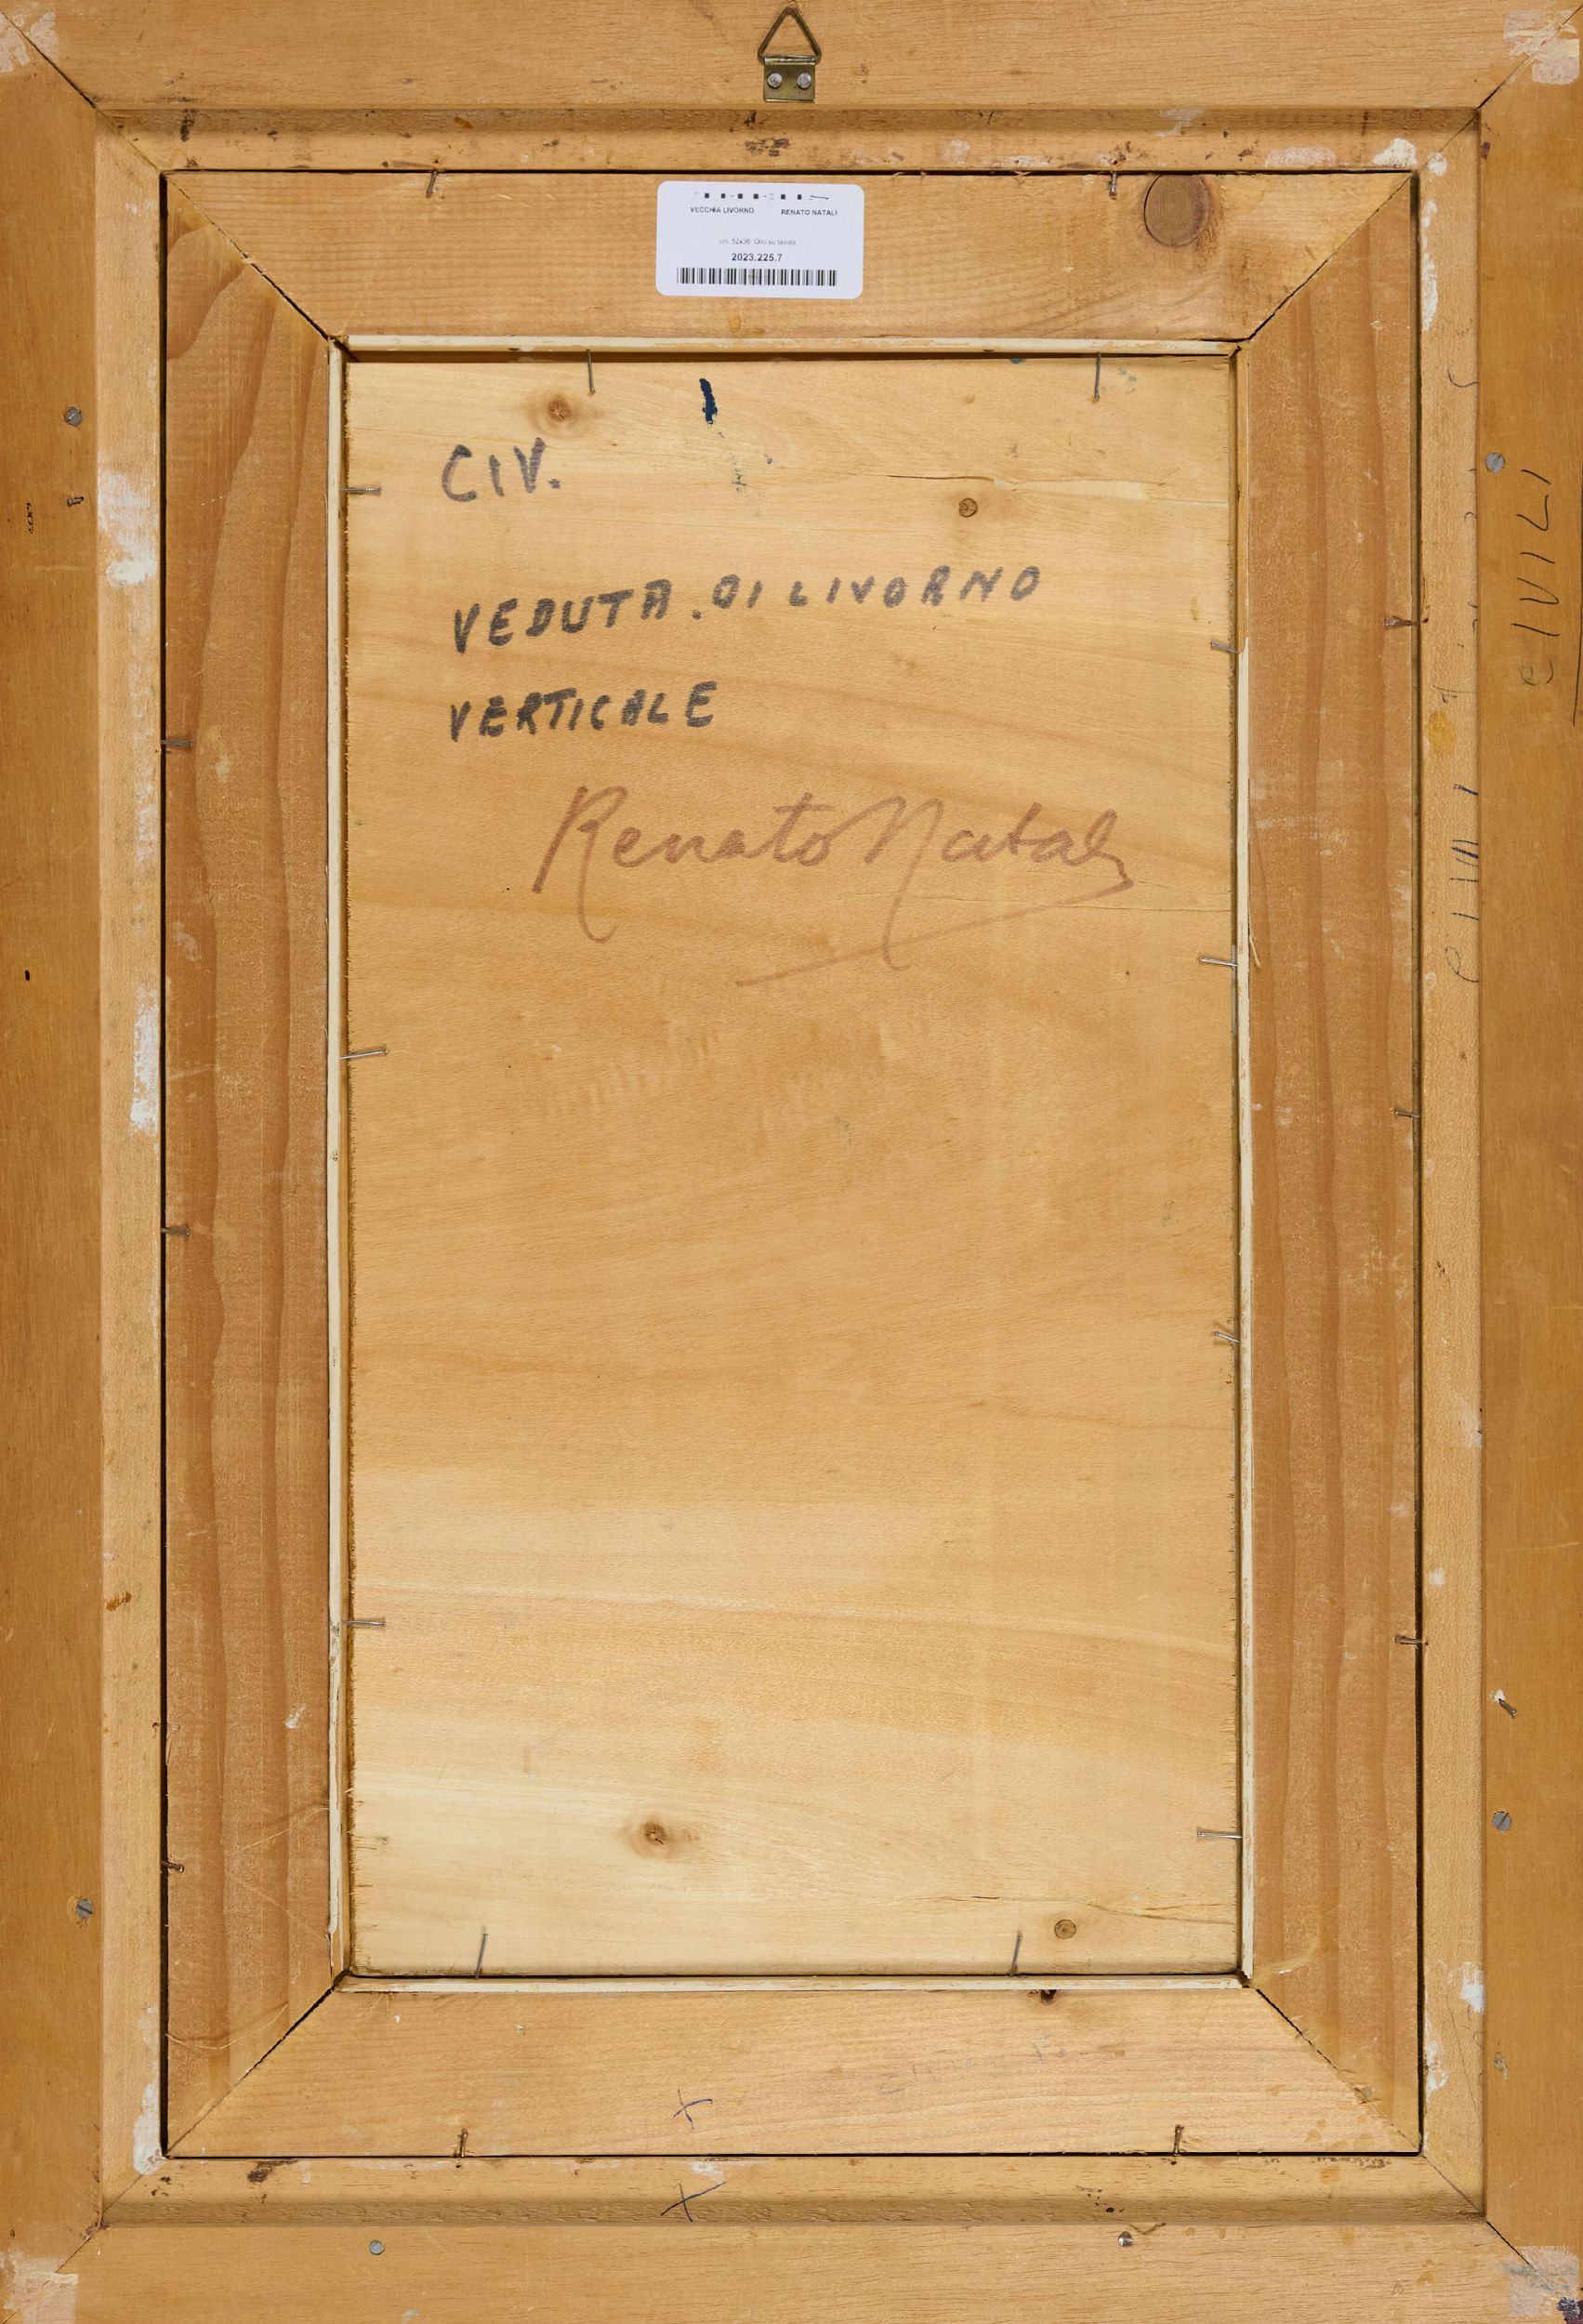 VECCHIA LIVORNO RENATO NATALI
cm. 52x36 Olio su tavola
2023.225.7
CIV.
VEDUTA. DI LIVORNO
VERTICALE
Renato Natali
CIVILI